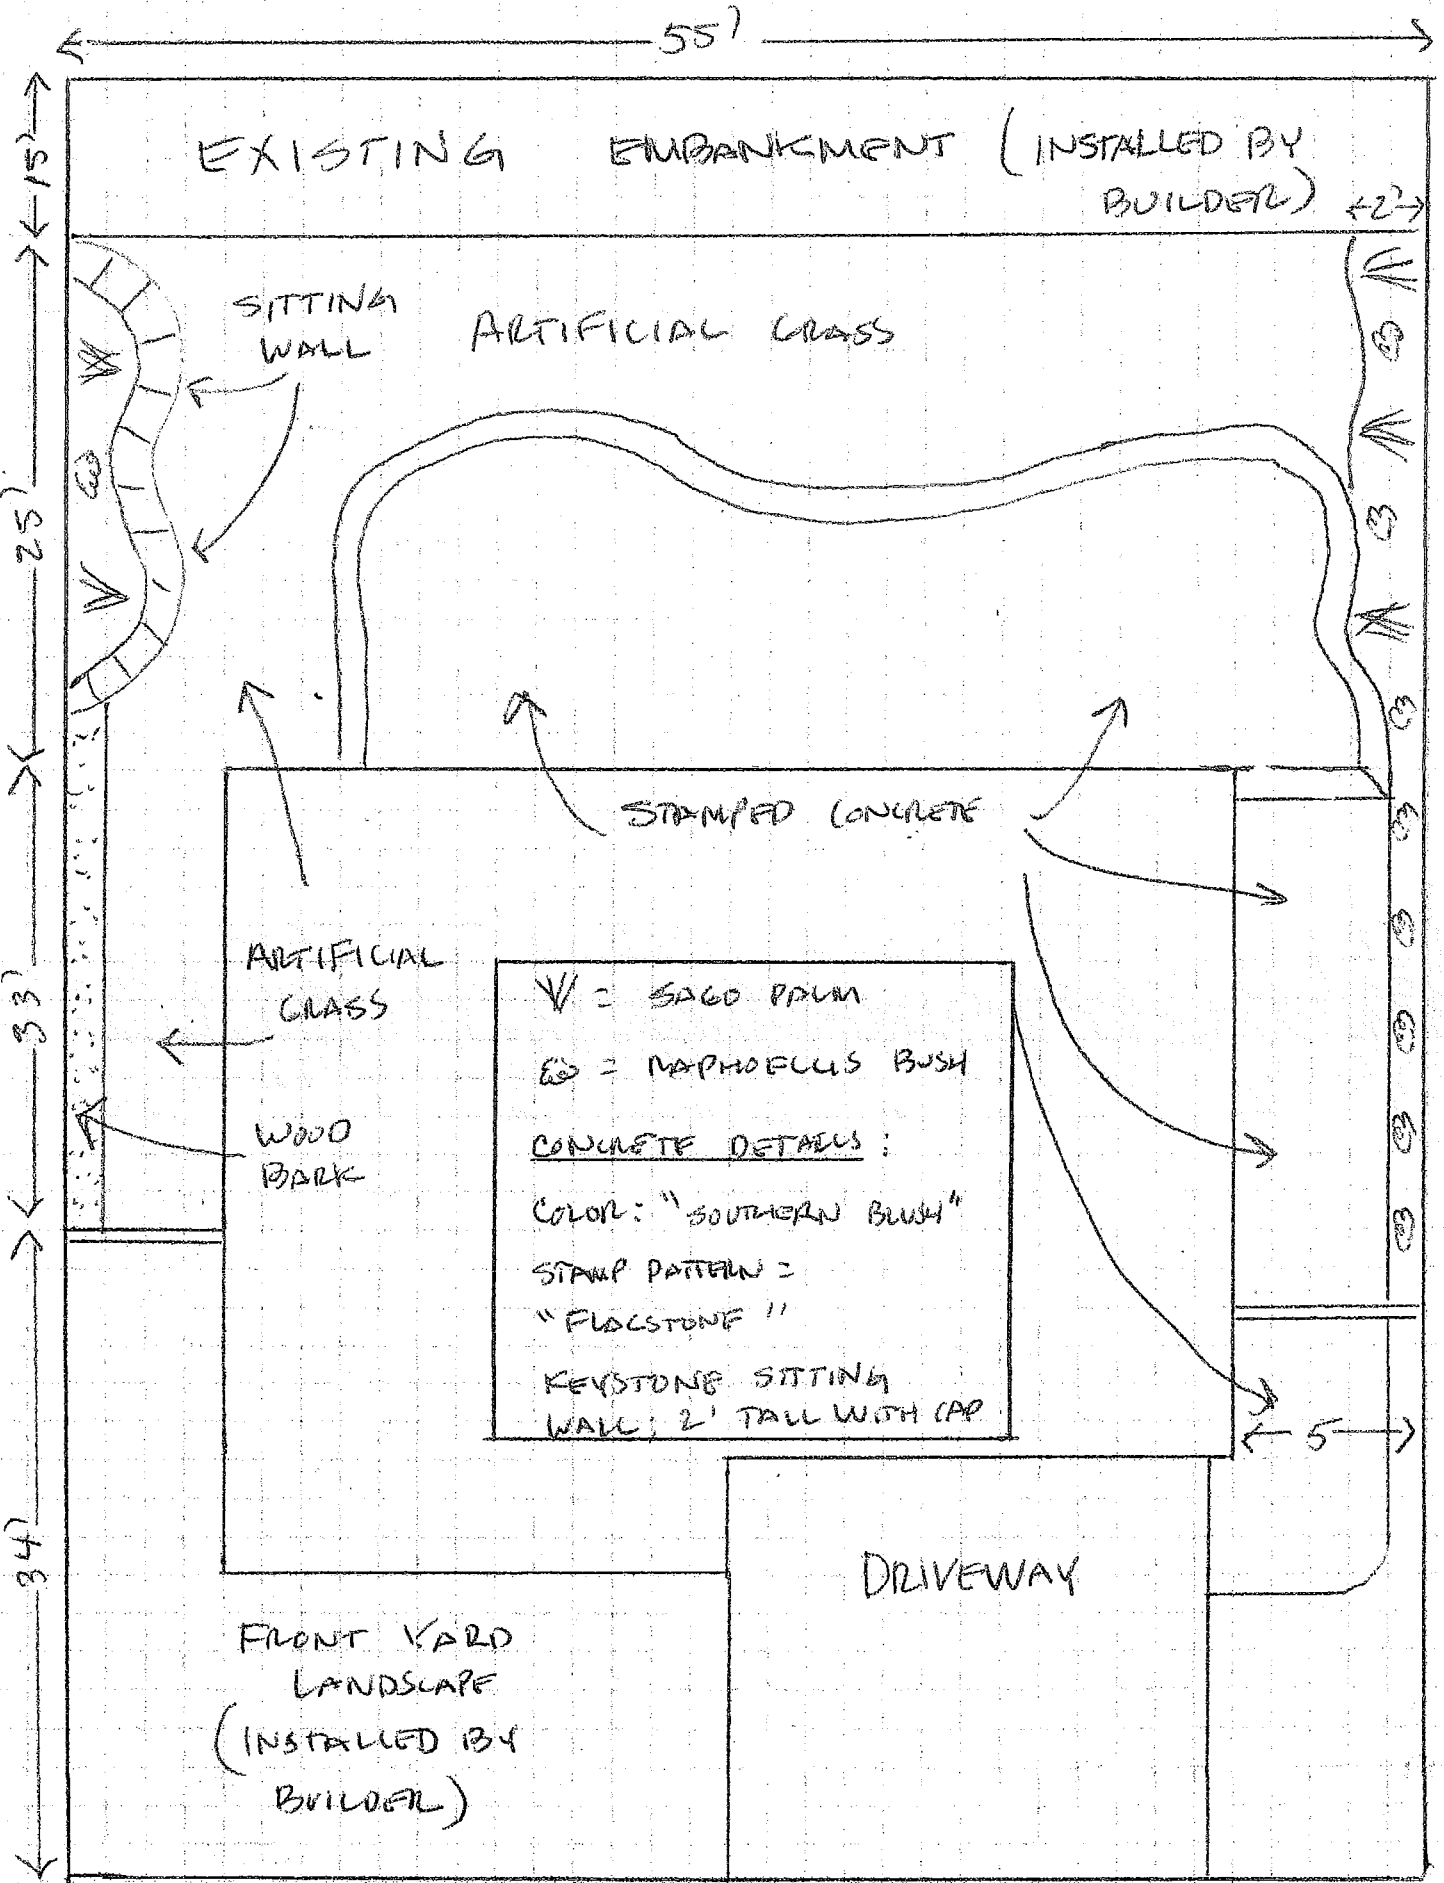 55'
15'
EXISTING EMBANKMENT (INSTALLED BY
BUILDER)
2'
SITTING
WALL
ARTIFICIAL GRASS
25'
STAMPED CONCRETE
ARTIFICIAL
GRASS
33'
WOOD
BARK
= SAGO PALM
= RAPHOELLIS BUSH
CONCRETE DETAILS:
COLOR: "SOUTHERN BLUSH"
STAMP PATTERN =
"FLAGSTONE"
KEYSTONE SITTING
WALL: 2' TALL WITH CAP
5
34'
DRIVEWAY
FRONT YARD
LANDSCAPE
(INSTALLED BY
BUILDER)